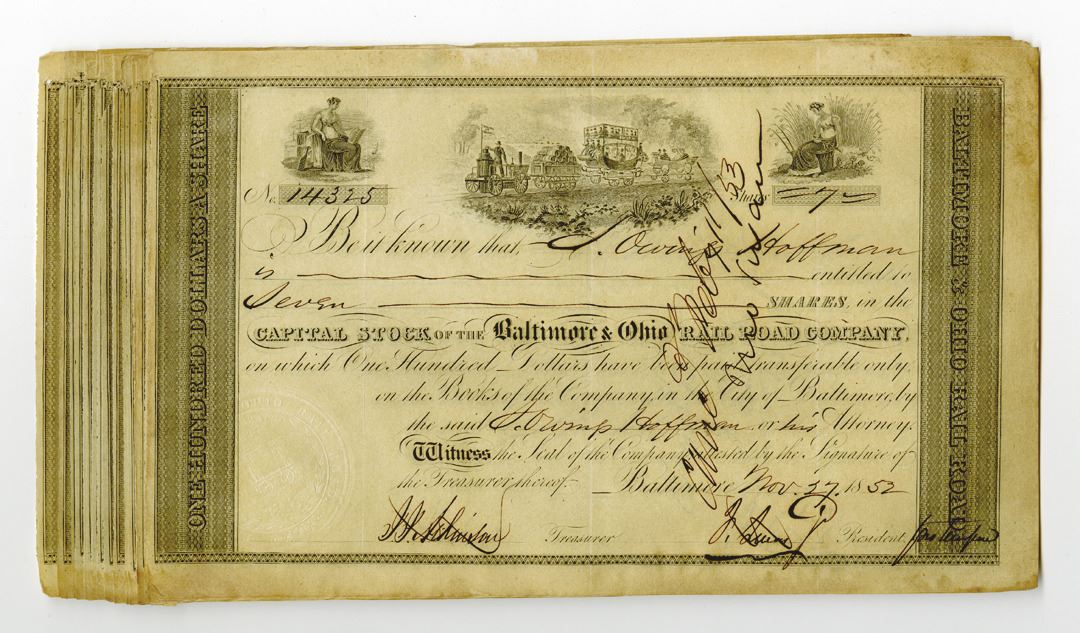 ONE HUNDRED DOLLARS A SHARE
No. 14325
Shares 7
Be it known that, S. Owings Hoffman
is entitled to
Seven SHARES, in the
CAPITAL STOCK OF THE Baltimore & Ohio RAIL ROAD COMPANY,
on which One Hundred Dollars have been paid transferable only
on the Books of the Company, in the City of Baltimore, by
the said S. Owings Hoffman or his Attorney.
Witness the Seal of the Company attested by the Signature of
the Treasurer thereof.
Baltimore Nov. 27, 1852
Treasurer
President
BALTIMORE & OHIO RAIL ROAD